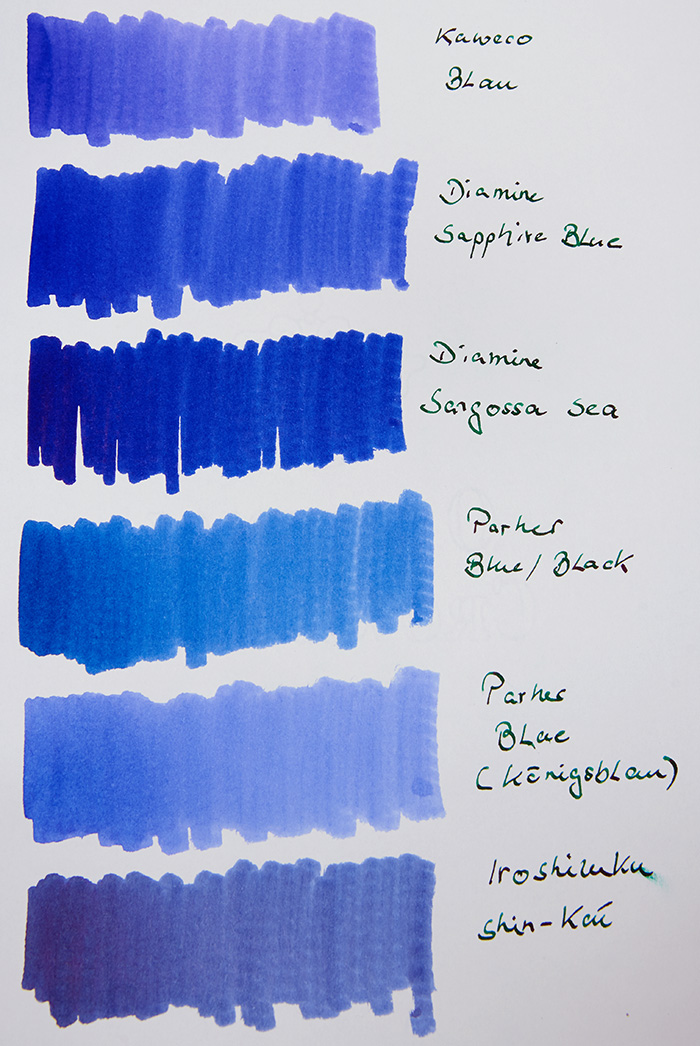 Kaweco
Blau
Diamine
Sapphire Blue
Diamine
Sargossa Sea
Parker
Blue / Black
Parker
Blue
(Königsblau)
Iroshizuku
Shin-Kai